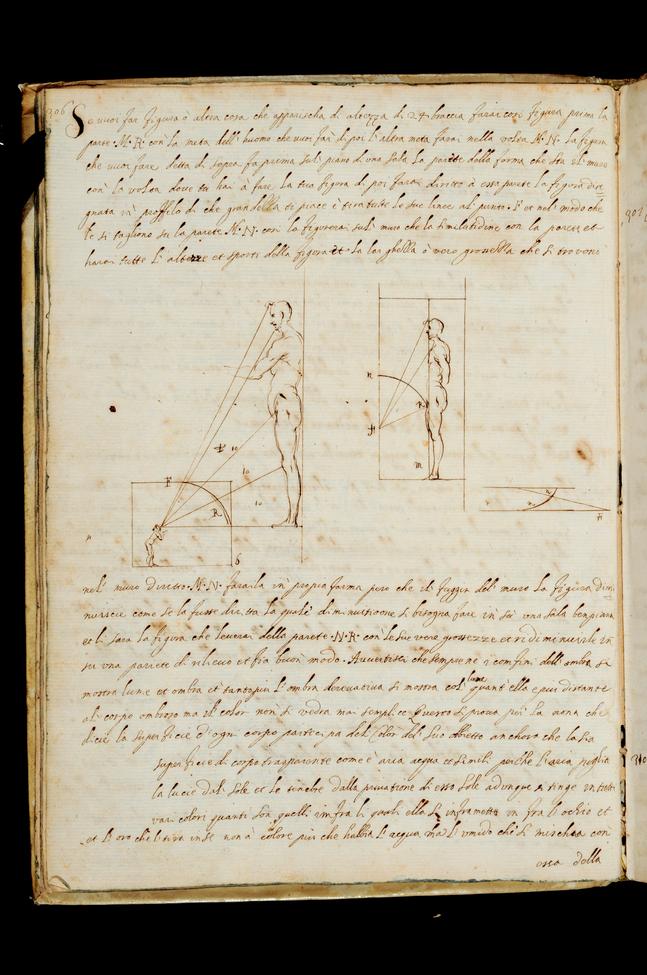 306
Se vuoi far figura ò altra cosa che apparischa di altezza di 24 braccia farai così figura prima la
parte .M.R. con la metà dell'huomo che vuoi far di poi l'altra metà farai nella volta .M.N. la figura
che vuoi fare detta di sopra fa prima sul piano di una sala la parete della forma che sta il muro
con la volta dove tu hai à fare la tua figura di poi farai dirieto à essa parete la figura dise
gnata in proffilo di che grandezza te piace è tira tutte le sue linee al punto .F. et nel modo che
le si tagliono su la parete .N.R. così la figurerai sul muro che ha similitudine con la parete et
harai tutte l'altezze et sporti della figura et la larghezza ò vero grossezza che si trovono
F
R
10
10
10
6
n
R
F
m
n
F
nel muro diritto .M.R. farai la in propria forma però che il fuggir del muro la figura dimi
nuiscie come se la fusse diritta la quale diminutione ti bisogna fare in su una sala ben piana
et li sarà la figura che leverai della parete .N.R. con le sue vere grossezze et ridiminuirle in
su una pariete di rilievo et fia buon modo. Avvertisci che sempre ne i confini dell'ombra si
mostra lume et ombra et tanto più l'ombra derivativa si mostra col lume quant'ella è più distante
al corpo ombroso ma il color non si vedrà mai semplice Questo si prova per la nona che
dicie la superficie d'ogni corpo participa del color del suo obbietto anchora che la sia
superficie di corpo trasparente come è aria acqua et simili perche l'aria piglia
la lucie dal sole et le tenebre dalla privatione di esso sole adonque si tinge in tutti
vari colori quanti son quelli infra li quali ella s'inframette in fra l'ochio et
et l'oro che l'aria in se non à colore più che habbia l'acqua ma l'umido che si mischia con
essa dalla
301
310